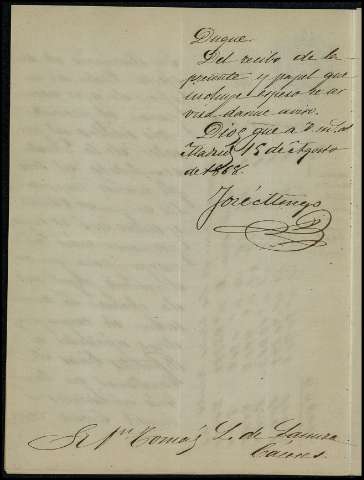 Duque.
Del recibo de la
presente y papel que
incluye espero se ser
virá darme aviso.
Dios gue a V. ms. as.
Madrid 15 de Agosto
de 1868.
José
Sr. Dn. Tomás L. de
Cáceres.